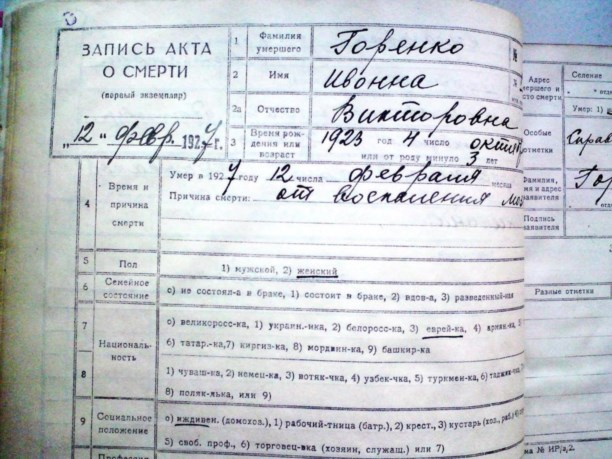 ЗАПИСЬ АКТА
О СМЕРТИ
(первый экземпляр)
„12“ февр. 1927 г.
1 Фамилия умершего Горенко
2 Имя Ивонна
2а Отчество Викторовна
3 Время рождения или возраст 1923 год 4 число октяб
или от роду минуло 3 лет
4 Время и причина смерти
Умер в 1927 году 12 числа февраля месяца
Причина смерти: от воспаления
5 Пол 1) мужской, 2) женский
6 Семейное состояние о) не состоял-а в браке, 1) состоит в браке, 2) вдов-а, 3) разведенный-ная
7 Националь-ность
о) великоросс-ка, 1) украин.-нка, 2) белоросс-ка, 3) еврей-ка, 4) армян.-ка, 5
6) татар.-ка, 7) киргиз-ка, 8) мордвин-ка, 9) башкир-ка
8 1) чуваш-ка, 2) немец-ка, 3) вотяк-чка, 4) узбек-чка, 5) туркмен-ка, 6)
8) поляк-лька, или 9)
9 Социальное положение
о) иждивен. (домохоз.), 1) рабочий-тница (батр.), 2) крест., 3) кустарь
5) своб. проф., 6) торговец-вка (хозяин, служащ.) или 7)
Адрес умершего и место смерти
Селение
Умер: 1)
Особые отметки
Справ
Фамилия, имя и адрес заявителя
Гор
Подпись заявителя
Разные отметки